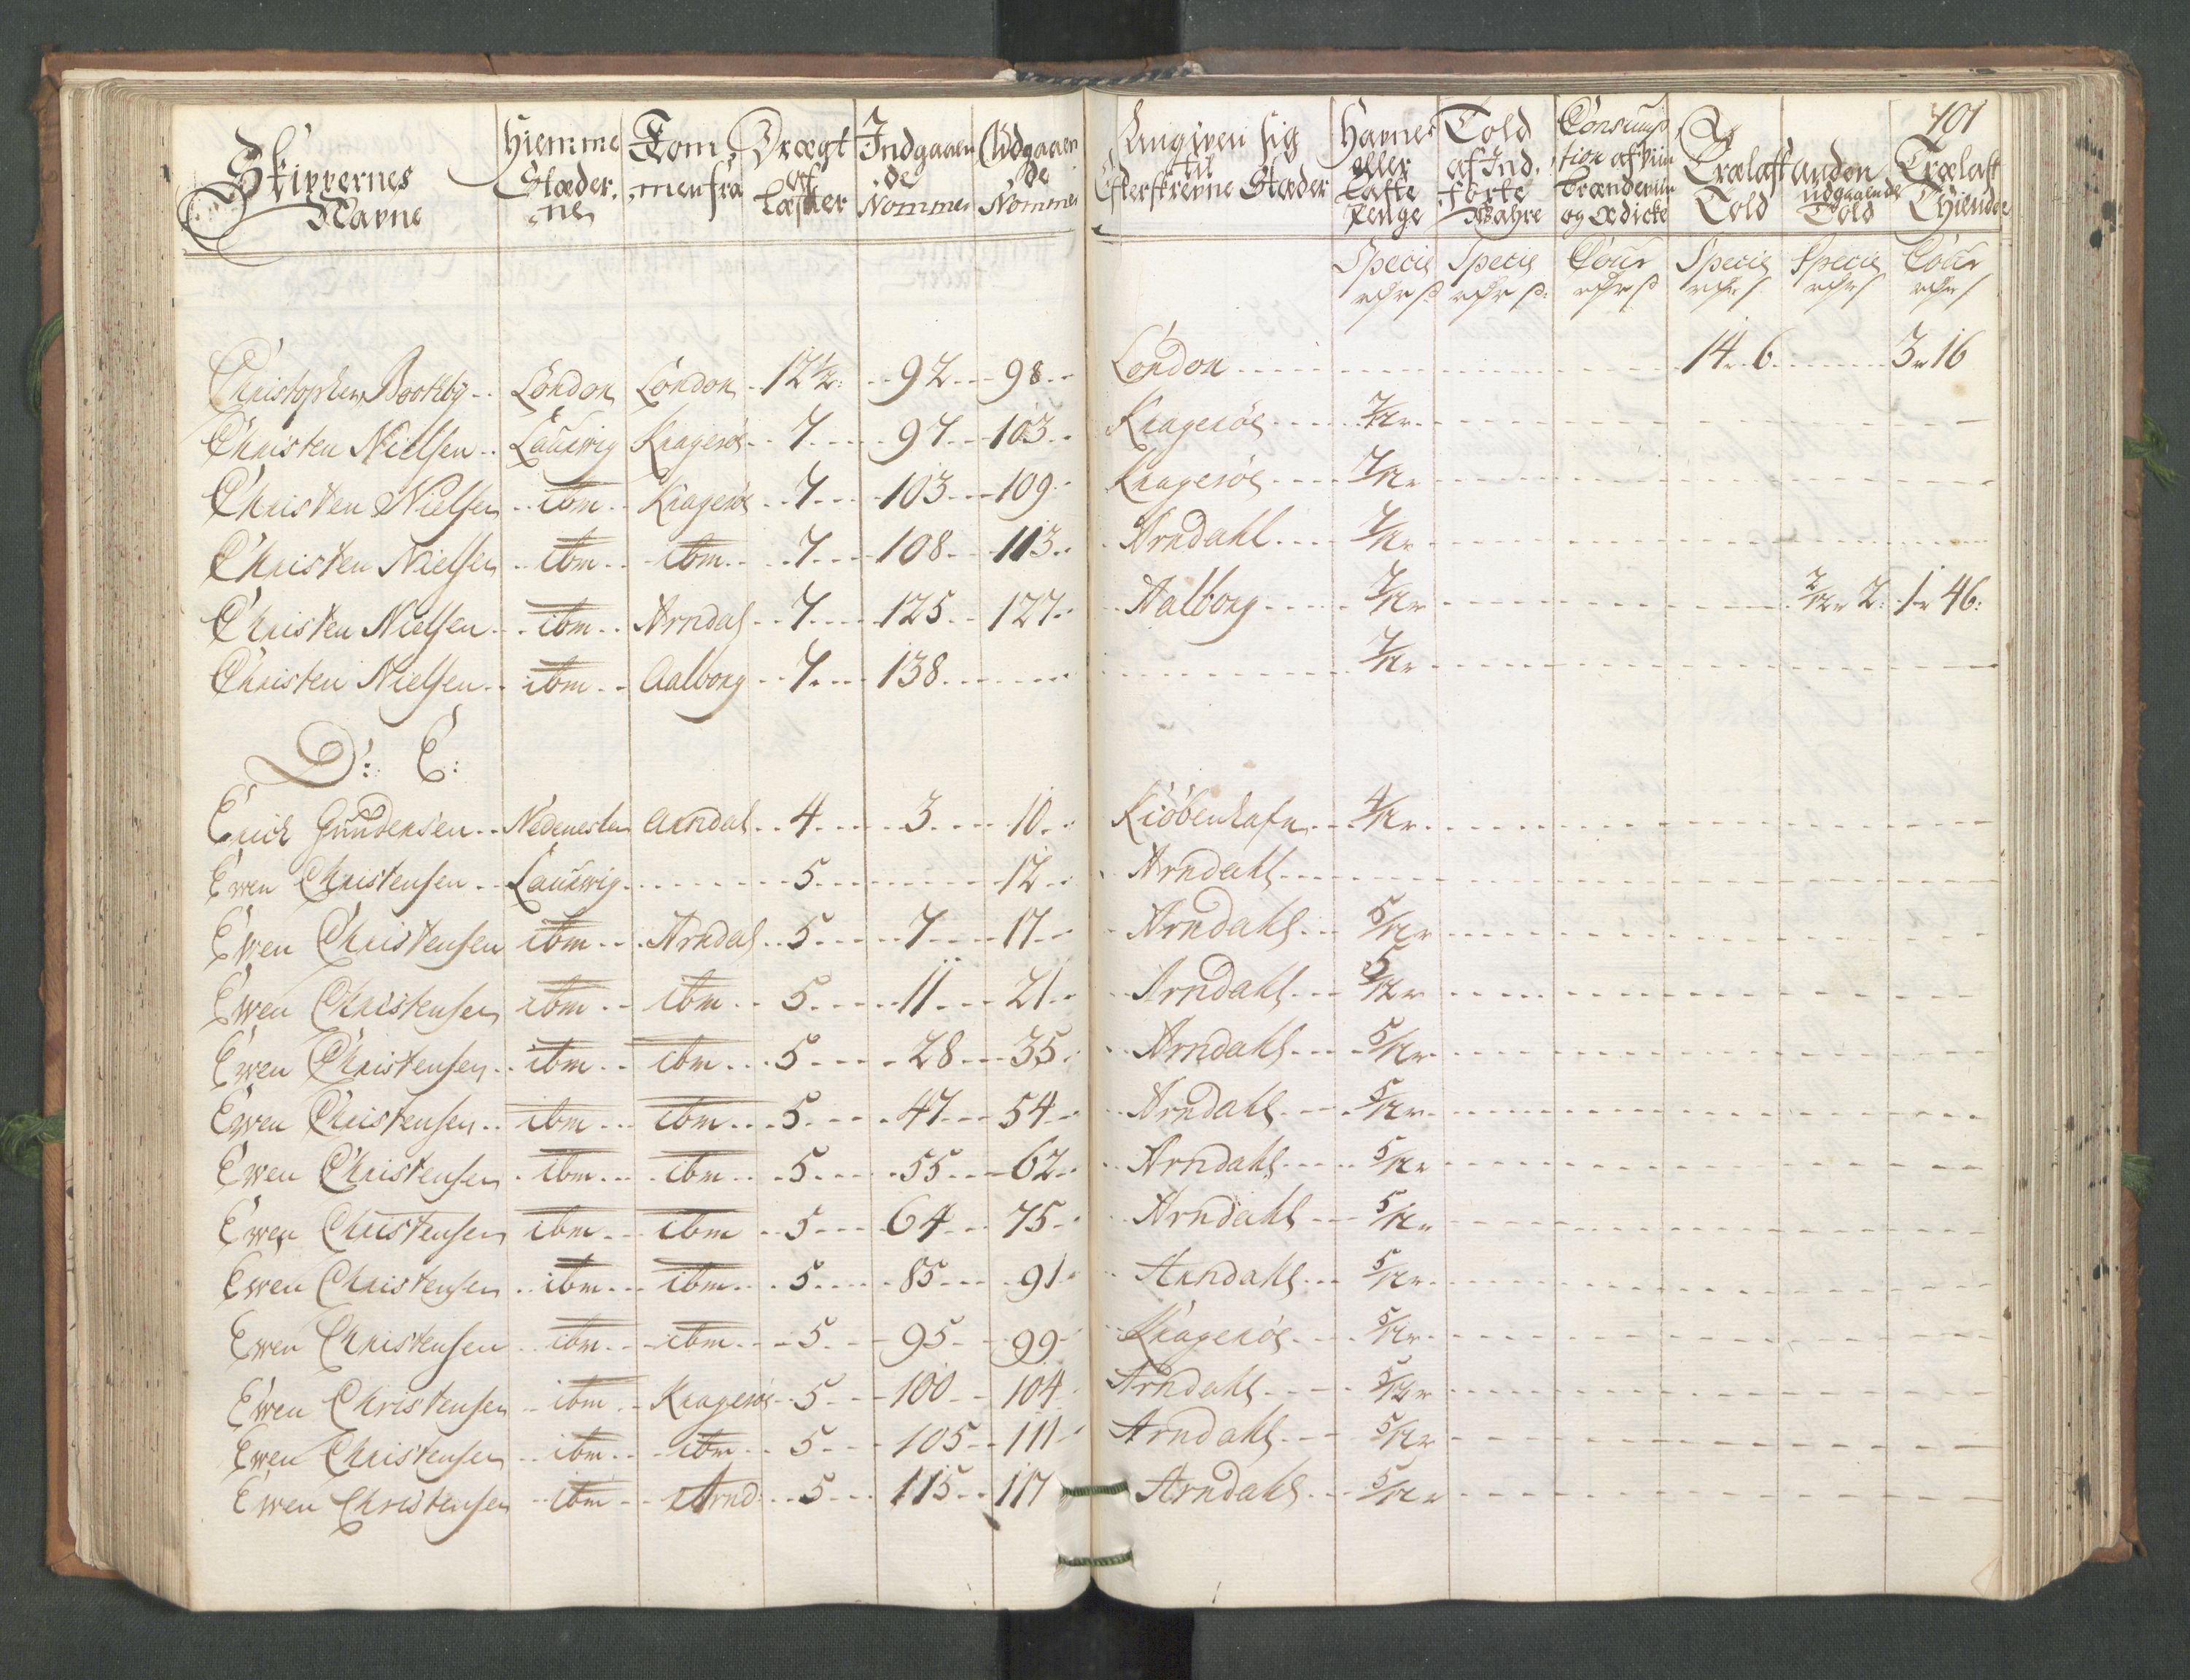 101
Skippernes Navne | Hiemme Stæder ne | Kommen fra | Drægt af Læster | Indgaaende Nommer | Udgaaende Nommer | Angiven sig til Efterskrevne Stæder | Havnes eller Laste Penge | Told af Ind førte Wahre | Consumption af Viin Brændeviin og Ædicke | Trælast Told | anden udgaaende Told | Trælast Thiende
Specie | Specie | Cour | Specie | Specie | Cour
Christopher Boothby | London | London | 12 1/2 | 92 | 98 | London | 14 6 | 3 16
Christen Nielsen | Laurwig | Kragerøe | 7 | 97 | 103 | Kragerøe | 7/12
Christen Nielsen | ibm | Kragerøe | 7 | 103 | 109 | Kragerøe | 7/12
Christen Nielsen | ibm | ibm | 7 | 108 | 113 | Arndahl | 7/12
Christen Nielsen | ibm | Arndal | 7 | 125 | 127 | Aalborg | 7/12 | 2/12 2 | 1 46
Christen Nielsen | ibm | Aalborg | 7 | 138 | 7/12
D: E:
Erich Gundersen | Nedenesler | Arndal | 4 | 3 | 10 | Kiöbenhafn | 4/12
Ewen Christensen | Laurwig | 5 | 12 | Arndahl
Ewen Christensen | ibm | Arndal | 5 | 7 | 17 | Arndahl | 5/12
Ewen Christensen | ibm | ibm | 5 | 11 | 21 | Arndahl | 5/12
Ewen Christensen | ibm | ibm | 5 | 28 | 35 | Arndahl | 5/12
Ewen Christensen | ibm | ibm | 5 | 47 | 54 | Arndahl | 5/12
Ewen Christensen | ibm | ibm | 5 | 55 | 62 | Arndahl | 5/12
Ewen Christensen | ibm | ibm | 5 | 64 | 75 | Arndahl | 5/12
Ewen Christensen | ibm | ibm | 5 | 85 | 91 | Arndahl | 5/12
Ewen Christensen | ibm | ibm | 5 | 95 | 99 | Kragerøe | 5/12
Ewen Christensen | ibm | Kragerøe | 5 | 100 | 104 | Arndahl | 5/12
Ewen Christensen | ibm | ibm | 5 | 105 | 111 | Arndahl | 5/12
Ewen Christensen | ibm | Arnd: | 5 | 115 | 117 | Arndahl | 5/12